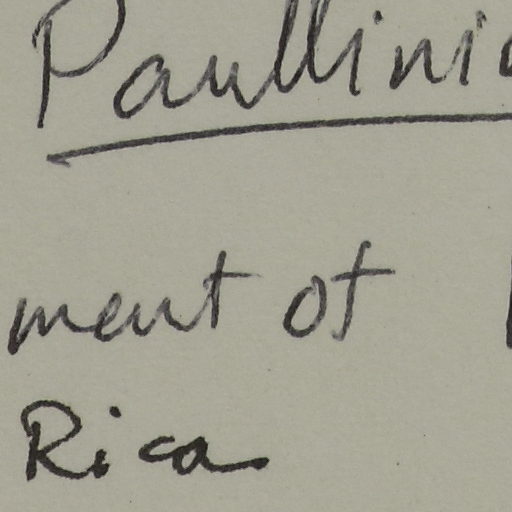 Paullini
ment of
Rica